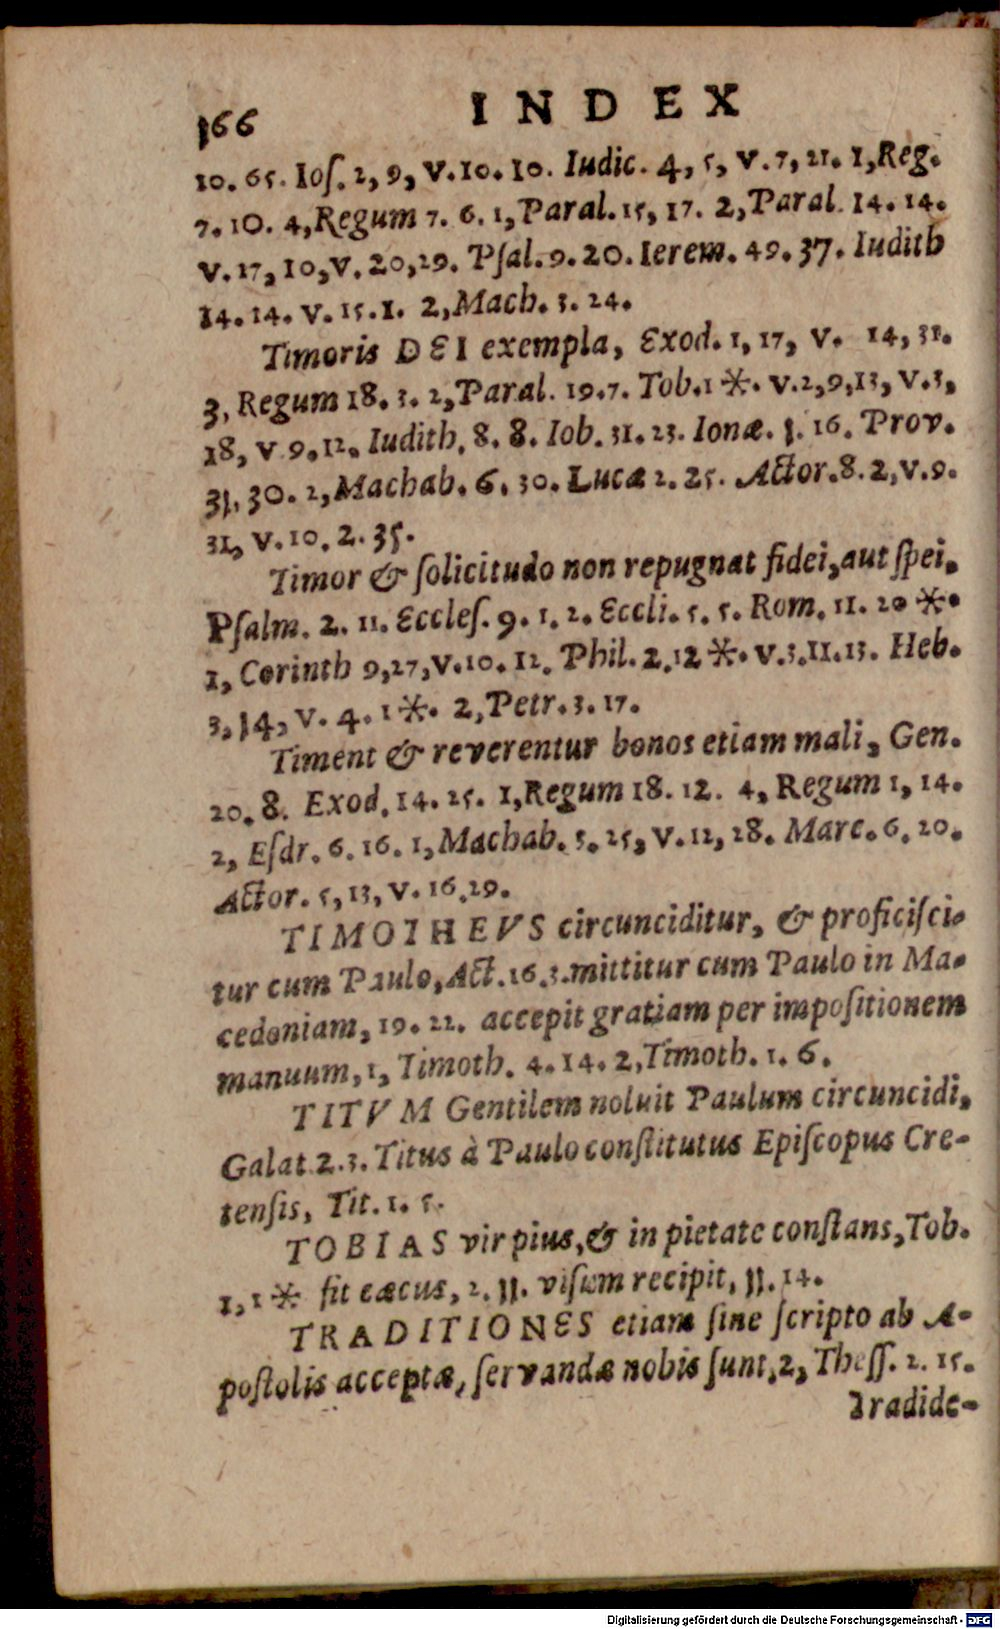 166 INDEX
10. 65. Ioſ. 2, 9, v. 10. 10. Iudic. 4, 5, v. 7, 21. 1, Reg.
7. 10. 4, Regum 7. 6. 1, Paral. 15, 17. 2, Paral. 14. 14.
v. 17, 10, v. 20, 29. Pſal. 9. 20. Ierem. 49. 37. Iudith
14. 14. v. 15. 1. 2, Mach. 3. 24.
Timoris DEI exempla, Exod. 1, 17, v. 14, 31.
3, Regum 18. 3. 2, Paral. 19. 7. Tob. 1 *. v. 2, 9, 13, v. 3,
18, v 9. 12. Iudith. 8. 8. Iob. 31. 23. Ionæ. 1. 16. Prov.
31. 30. 2, Machab. 6. 30. Lucæ 2. 25. Actor. 8. 2, v. 9.
31, v. 10. 2. 35.
Timor & ſolicitudo non repugnat fidei, aut ſpei.
Pſalm. 2. 11. Eccleſ. 9. 1. 2. Eccli. 5. 5. Rom. 11. 20 *.
1, Corinth 9, 27, v. 10. 12. Phil. 2. 12 *. v. 3. 11. 13. Heb.
3. 14, v. 4. 1 *. 2, Petr. 3. 17.
Timent & reverentur bonos etiam mali, Gen.
20. 8. Exod. 14. 25. 1, Regum 18. 12. 4, Regum 1, 14.
2, Eſdr. 6. 16. 1, Machab. 3. 25, v. 12, 28. Marc. 6. 20.
Actor. 5, 13, v. 16. 29.
TIMOTHEVS circunciditur, & proficiſci-
tur cum Paulo, Act. 16. 3. mittitur cum Paulo in Ma-
cedoniam, 19. 22. accepit gratiam per impoſitionem
manuum, 1, Timoth. 4. 14. 2, Timoth. 1. 6.
TITVM Gentilem noluit Paulum circuncidi,
Galat. 2. 3. Titus à Paulo conſtitutus Epiſcopus Cre-
tenſis, Tit. 1. 5.
TOBIAS vir pius, & in pietate conſtans, Tob.
1, 1 * fit cæcus, 2. 11. viſum recipit, 11. 14.
TRADITIONES etiam ſine ſcripto ab A-
poſtolis acceptæ, ſervandæ nobis ſunt, 2, Theſſ. 2. 15.
Tradide-
Digitalisierung gefördert durch die Deutsche Forschungsgemeinschaft - DFG